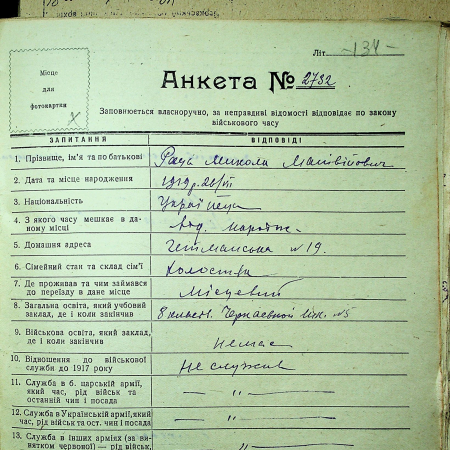 Літ. -134-
Місце
для
фотокартки
Анкета № 2732
Заповнюється власноручно, за неправдиві відомості відповідає по закону
військового часу
ЗАПИТАННЯ ВІДПОВІДІ
1. Прізвище, ім'я та по батькові Микола Матвійович
2. Дата та місце народження 1919 р.
3. Національність Українець
4. З якого часу мешкає в да-
ному місці Від
5. Домашня адреса Гетманська №19.
6. Сімейний стан та склад сім'ї Холостий
7. Де проживав та чим займався
до переїзду в дане місце Місцевий
8. Загальна освіта, який учбовий
заклад, де і коли закінчив 8 №5
9. Військова освіта, який заклад,
де і коли закінчив Немає
10. Відношення до військової
служби до 1917 року Не служив
11. Служба в б. царській армії,
який час, рід військ та
останній чин і посада — " —
12. Служба в Українській армії, який
час, рід військ та ост. чин і посада — " —
13. Служба в інших арміях (за ви-
нятком червоної) — рід військ, "